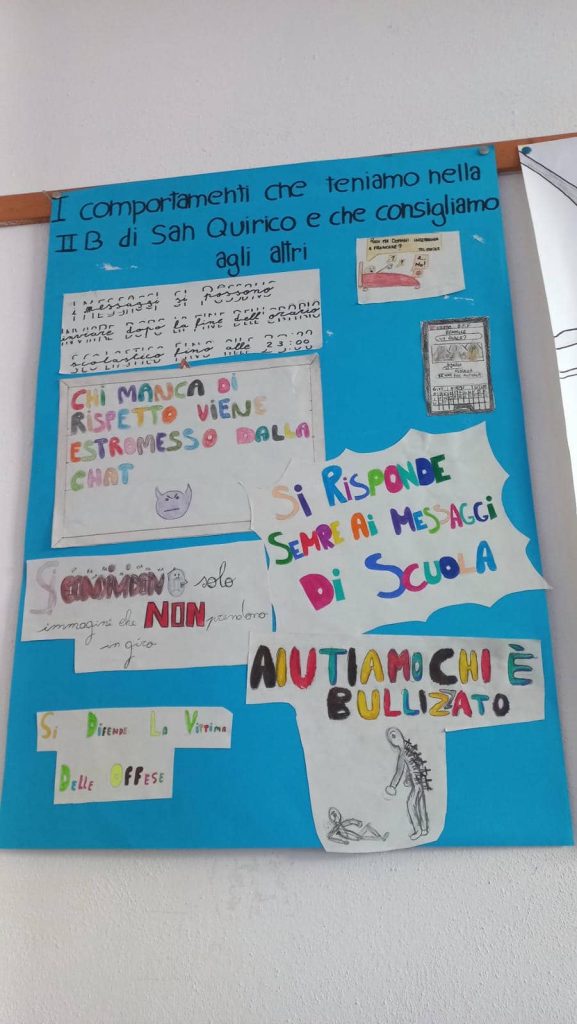 I comportamenti che teniamo nella
II B di San Quirico e che consigliamo
agli altri
I messaggi si possono
inviare dopo la fine dell'orario
scolastico fino alle 23:00
CHI MANCA DI
RISPETTO VIENE
ESTROMESSO DALLA
CHAT
Si RISPONDE
SEMPRE Ai MESSAGGi
Di SCUOLA
Si CONDIVIDONO solo
immagini che NON prendono
in giro
AIUTIAMO CHI È
BULLIZZATO
Si Difende La Vittima
Delle Offese